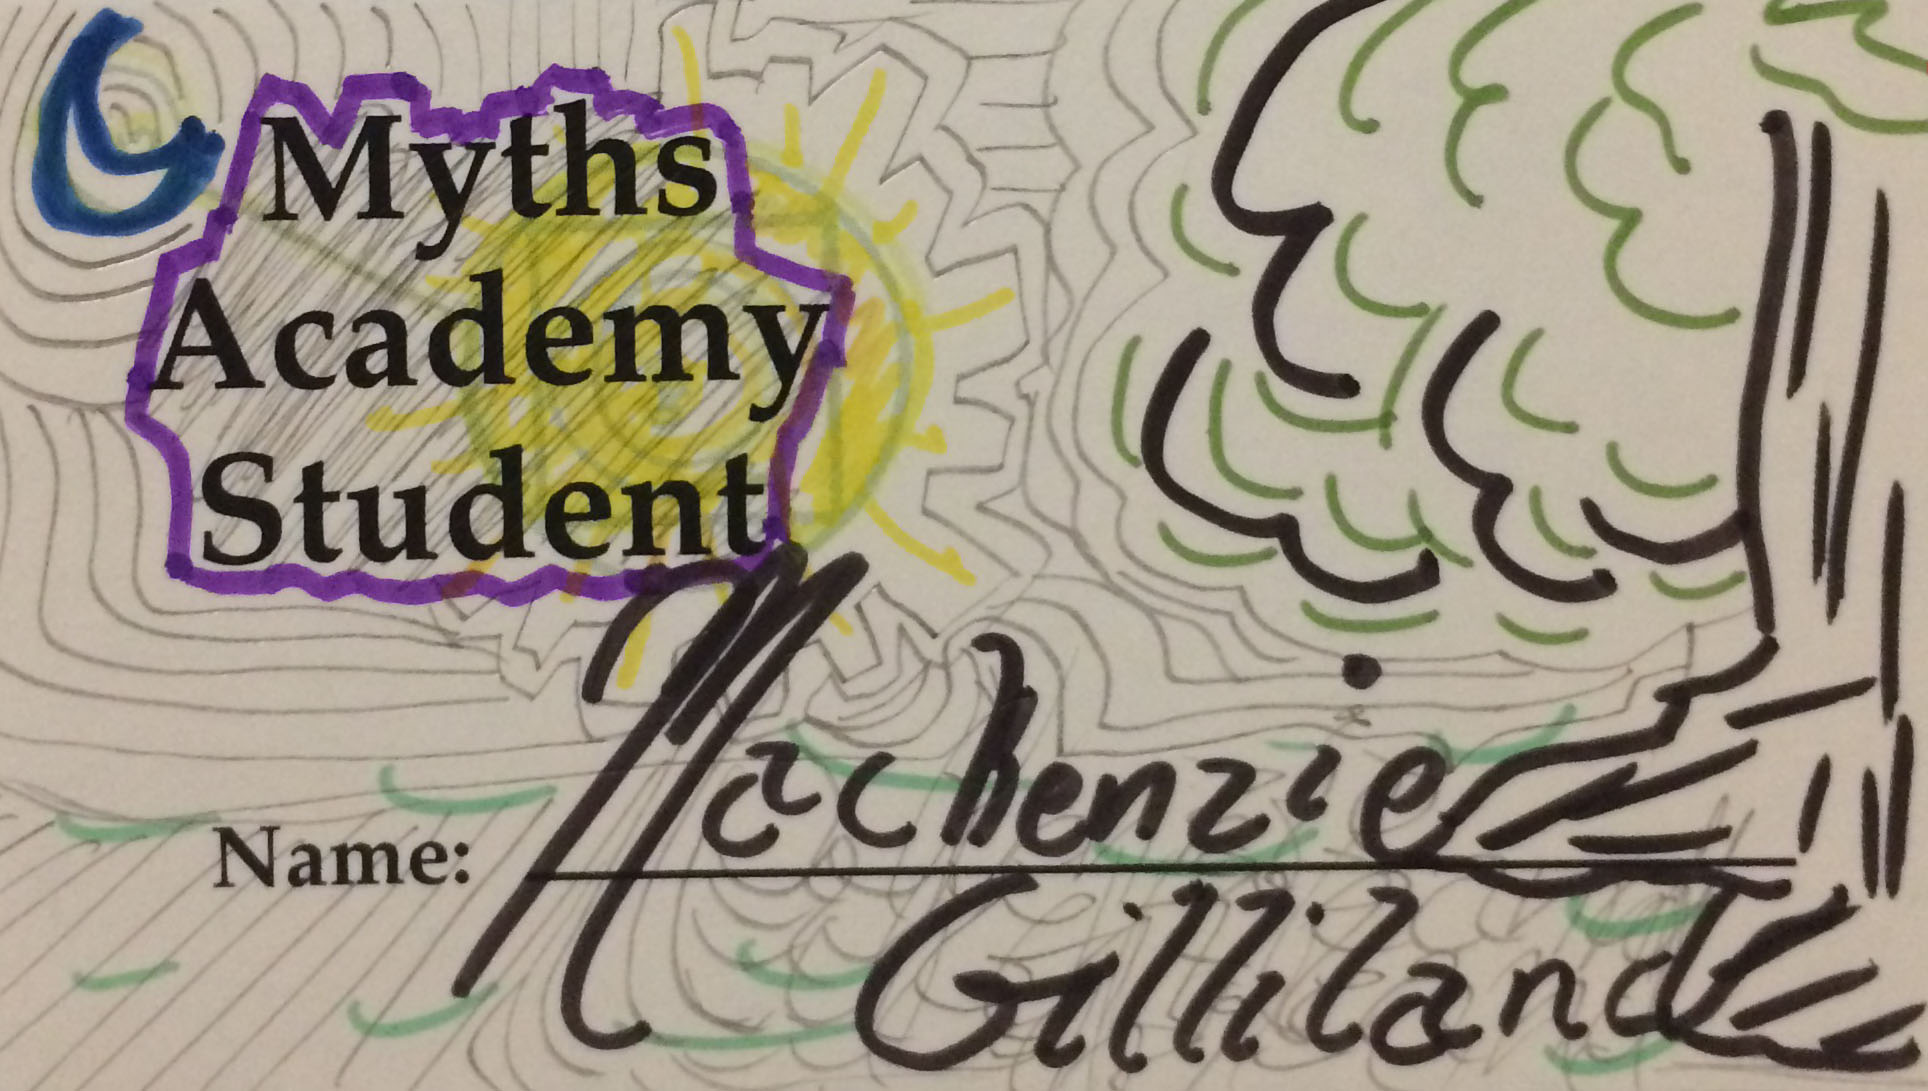 Myths
Academy
Student
Name: Mackenzie
Gilliland